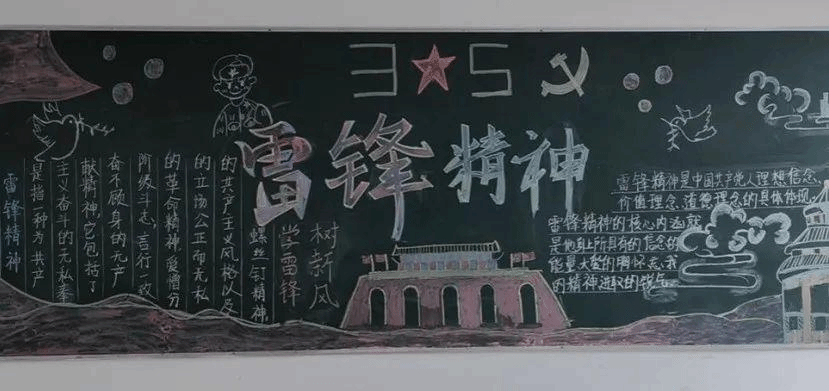 3 5
雷锋精神
雷锋精神
是指一种为共产
主义奋斗的无私奉
献精神,它包括了
奋不顾身的无产
阶级斗志,言行一致
的革命精神,爱憎分
的立场公正而无私
的共产主义风格以及
螺丝钉精神,
学雷锋
树新风
雷锋精神是中国共产党人理想信念、
价值理念、道德理念的具体体现,
雷锋精神的核心内涵就
是他身上所具有的信念的
能量大爱的胸怀忘我
的精神进取的锐气